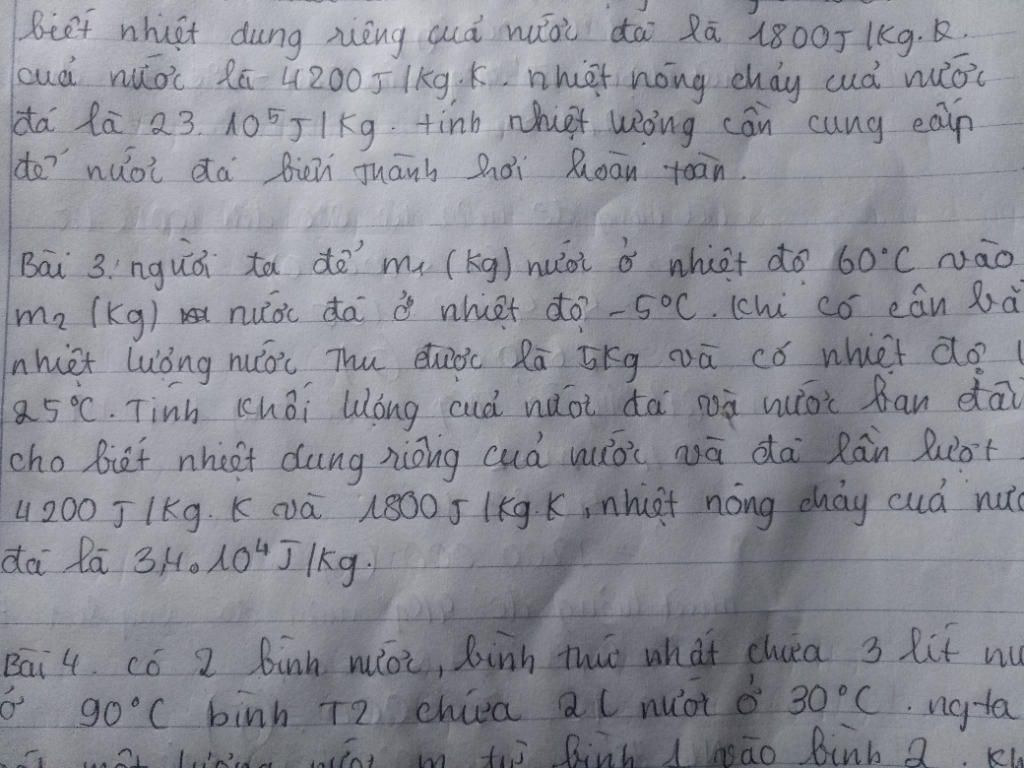 biết nhiệt dung riêng cuả nước đá là 1800J/kg.K.
cuả nước là 4200J/kg.K. nhiệt nóng chảy cuả nước
đá là 23.10⁵J/kg. tính nhiệt lượng cần cung cấp
để nước đá biến thành hơi hoàn toàn.
Bài 3. người ta để m₁ (kg) nước ở nhiệt độ 60°C vào
m₂ (kg) nước đá ở nhiệt độ -5°C. Khi có cân bằ
nhiệt lượng nước Thu được là 5kg và có nhiệt độ
25°C. Tính khối lượng cuả nước đá và nước ban đầu
cho biết nhiệt dung riêng cuả nước và đá lần lượt
4200J/kg.K và 1800J/kg.K, nhiệt nóng chảy cuả nướ
đá là 3,4.10⁴J/kg.
Bài 4. có 2 bình nước, bình thứ nhất chứa 3 lít nư
ở 90°C bình T2 chứa 2l nước ở 30°C. ngta
một lượng nước m từ bình 1 vào bình 2. Kh